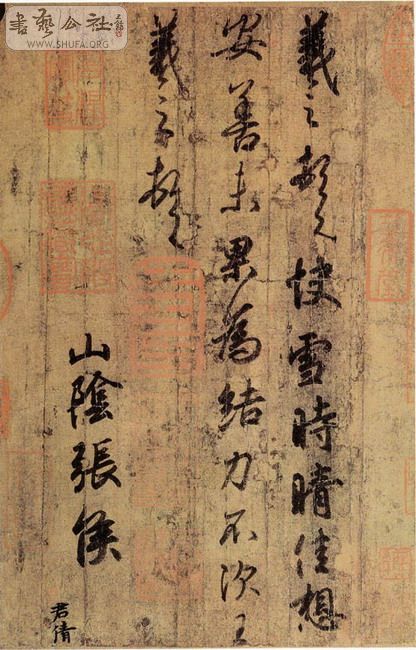 羲之頓首快雪時晴佳想
安善未果為結力不次王
羲之頓首
山陰張侯
君倩
書藝公社
WWW.SHUFA.ORG